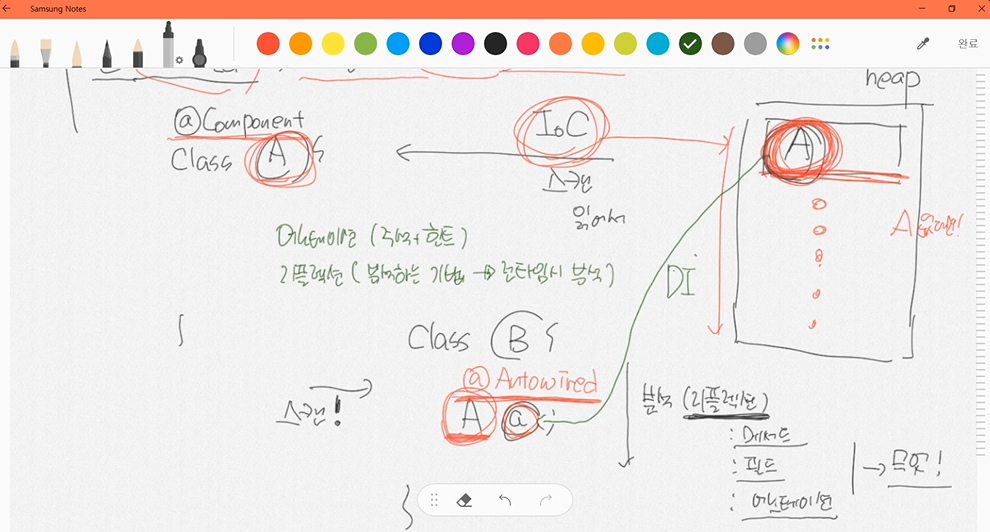 Samsung Notes
완료
heap
@Component
Class A {
IoC
스캔
읽어서
A
A 없다면!
어노테이션 (주석+힌트)
리플렉션 (분석하는 기법 → 런타임시 분석)
DI
Class B {
@Autowired
A a;
스캔!
분석 (리플렉션)
: 메서드
: 필드
: 어노테이션
→ 무엇!
}
}